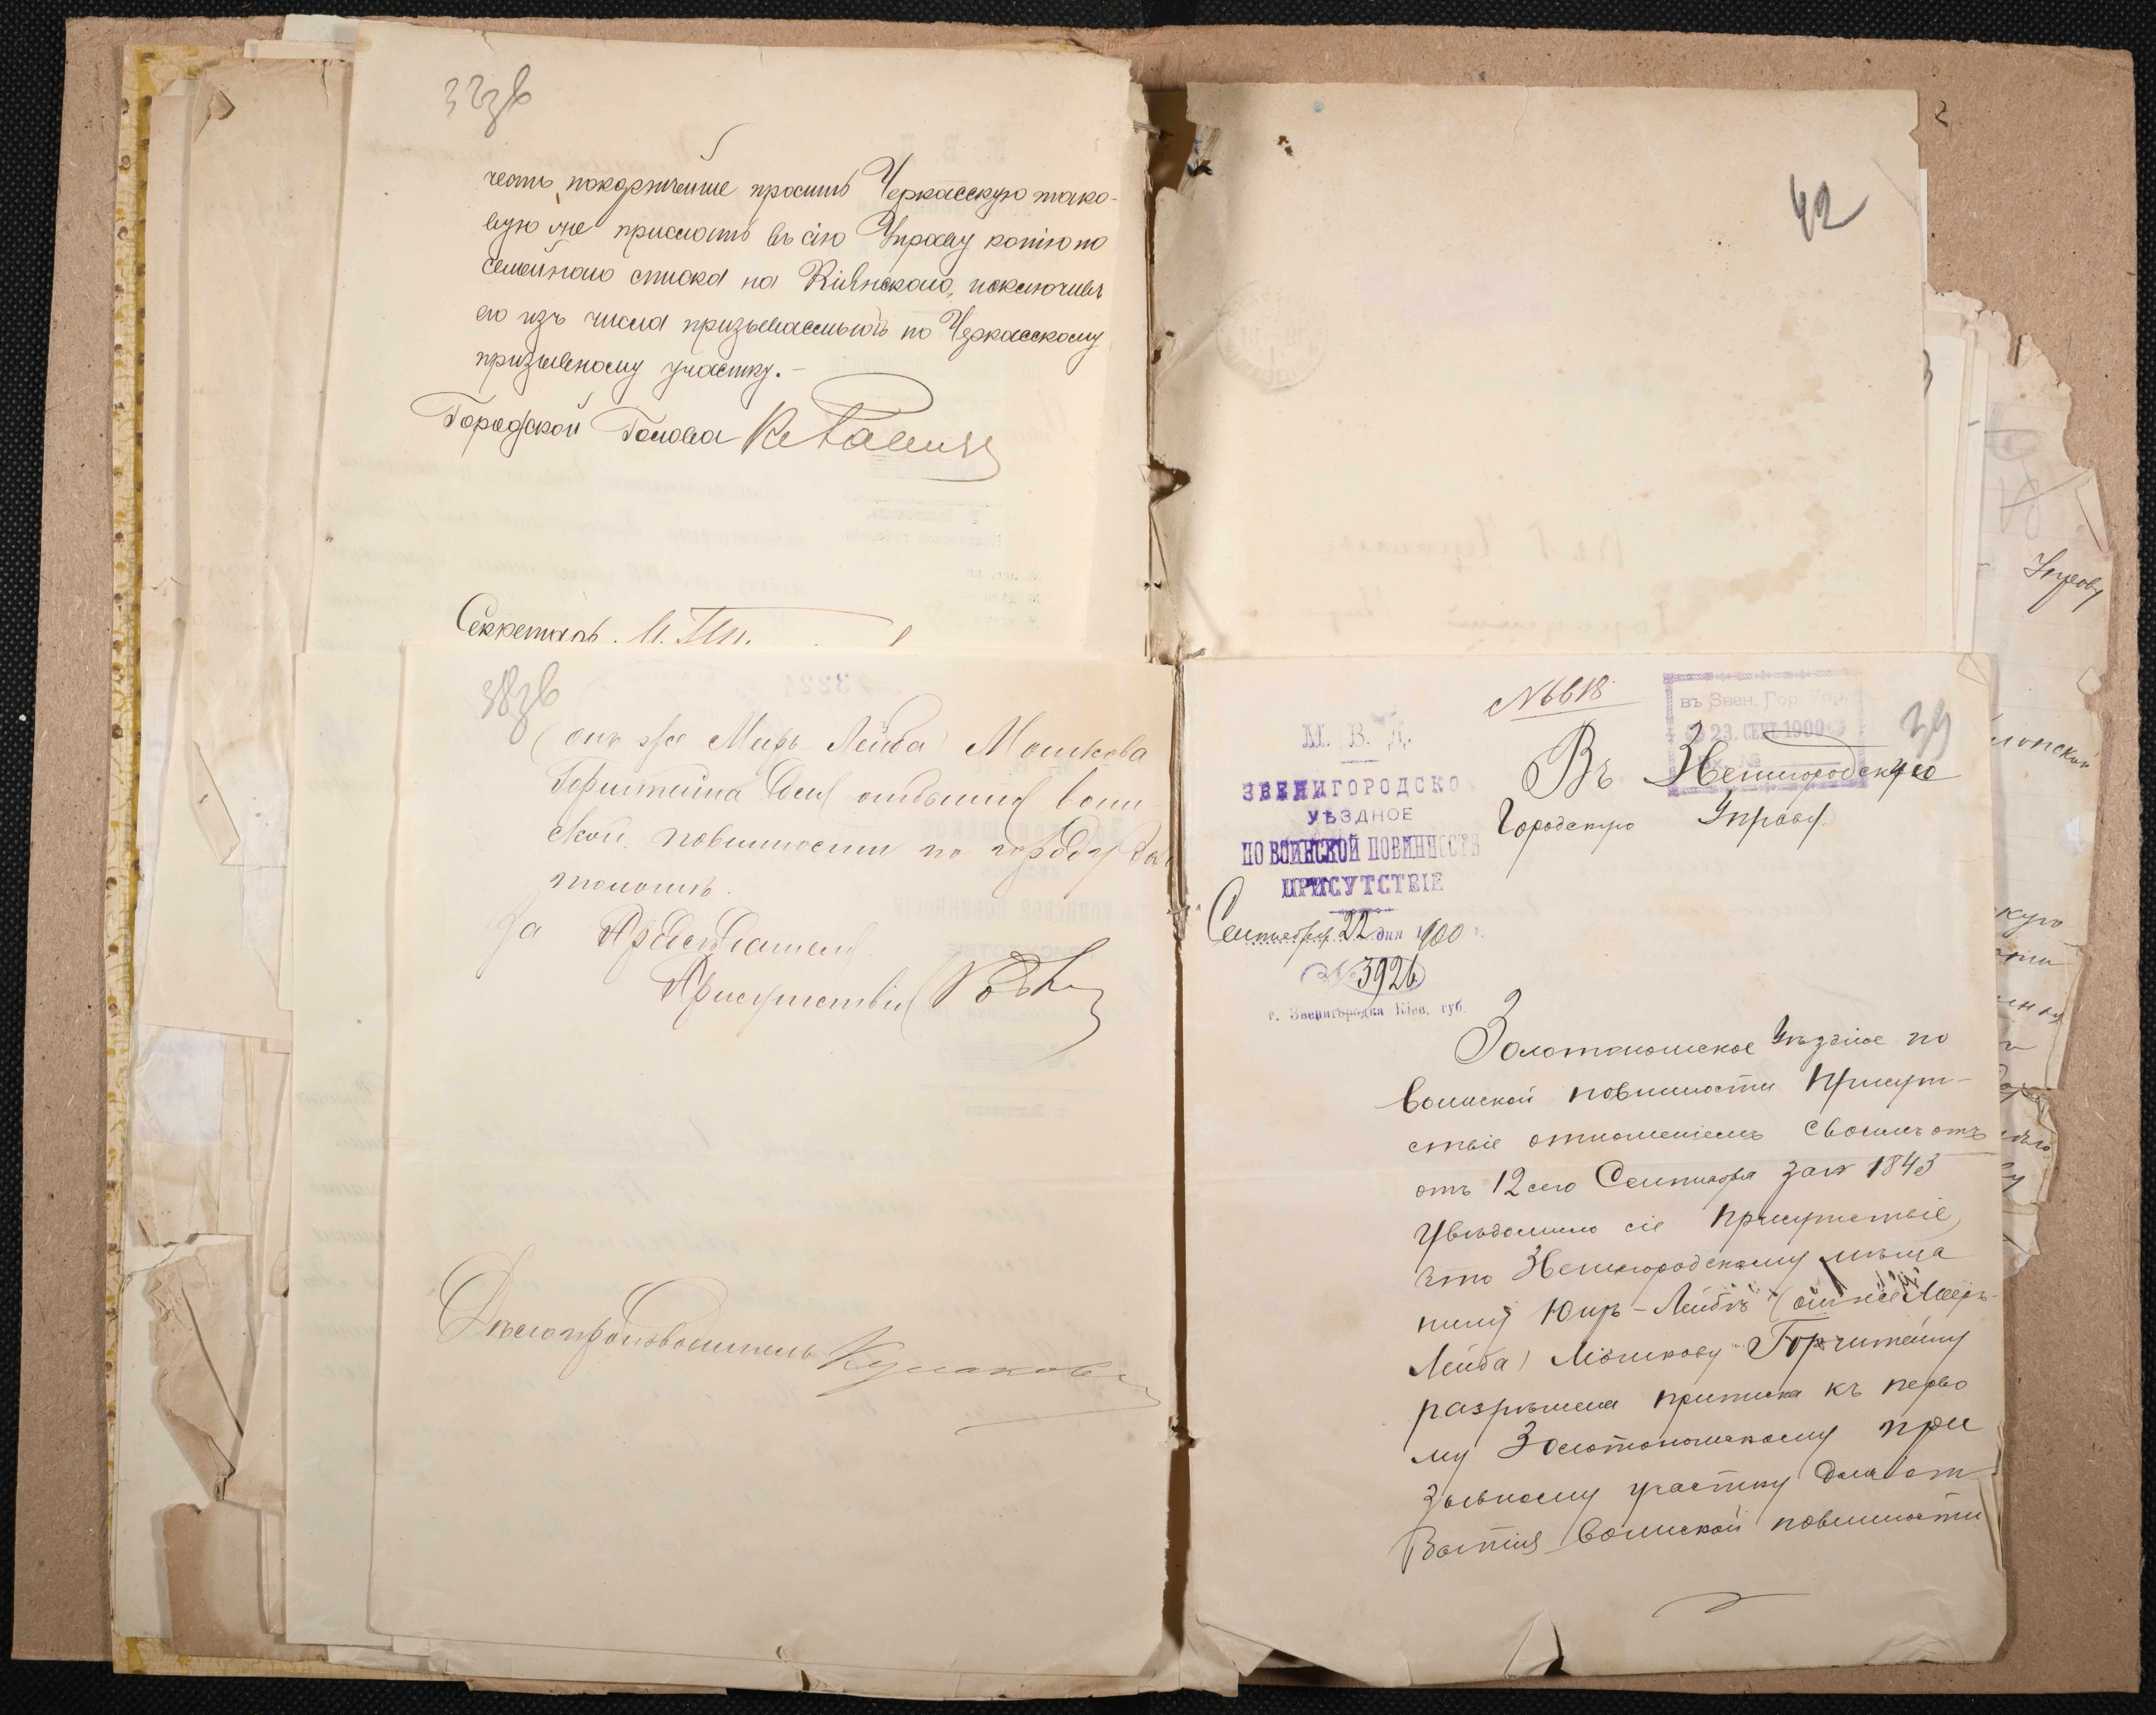 32зв
честь покорнѣйше просить Черкасскую тако-
вую же прислать въ сію Управу копію по
семейнаго списка на Кіянскаго, исключивъ
его изъ числа призываемыхъ по Черкасскому
призывному участку.-
Городской Голова
Секретарь
38зв
(онъ же Меръ-Лейба) Мошкова
Горштейна для отбытія воин
ской повинности по городу Золо
тоношѣ.
За Предсѣдателя
Присутствія
Дѣлопроизводитель Кулаковъ
42
Управу
39
№6618
въ Звен. Гор. Упр.
23. СЕНТ. 1900
М. В. Д.
ЗВЕНИГОРОДСКОЕ
УѢЗДНОЕ
ПО ВОИНСКОЙ ПОВИННОСТИ
ПРИСУТСТВІЕ
Сентября 22 дня 1900 г.
№ 3926
г. Звенигородка Кіев. губ.
Въ Звенигородскую
Городскую Управу.
Золотоношское Уѣздное по
воинской повинности Присут-
ствіе отношеніемъ своимъ отъ
отъ 12 сего Сентября за № 1843
Увѣдомило сіе Присутствіе,
что Звенигородскому мѣща
нину Юиръ-Лейбѣ (онъ же Меръ-
Лейба) Мошкову Горштейну
разрѣшена приписка къ перво
му Золотоношскому при
зывному участку для от
бытія воинской повинности